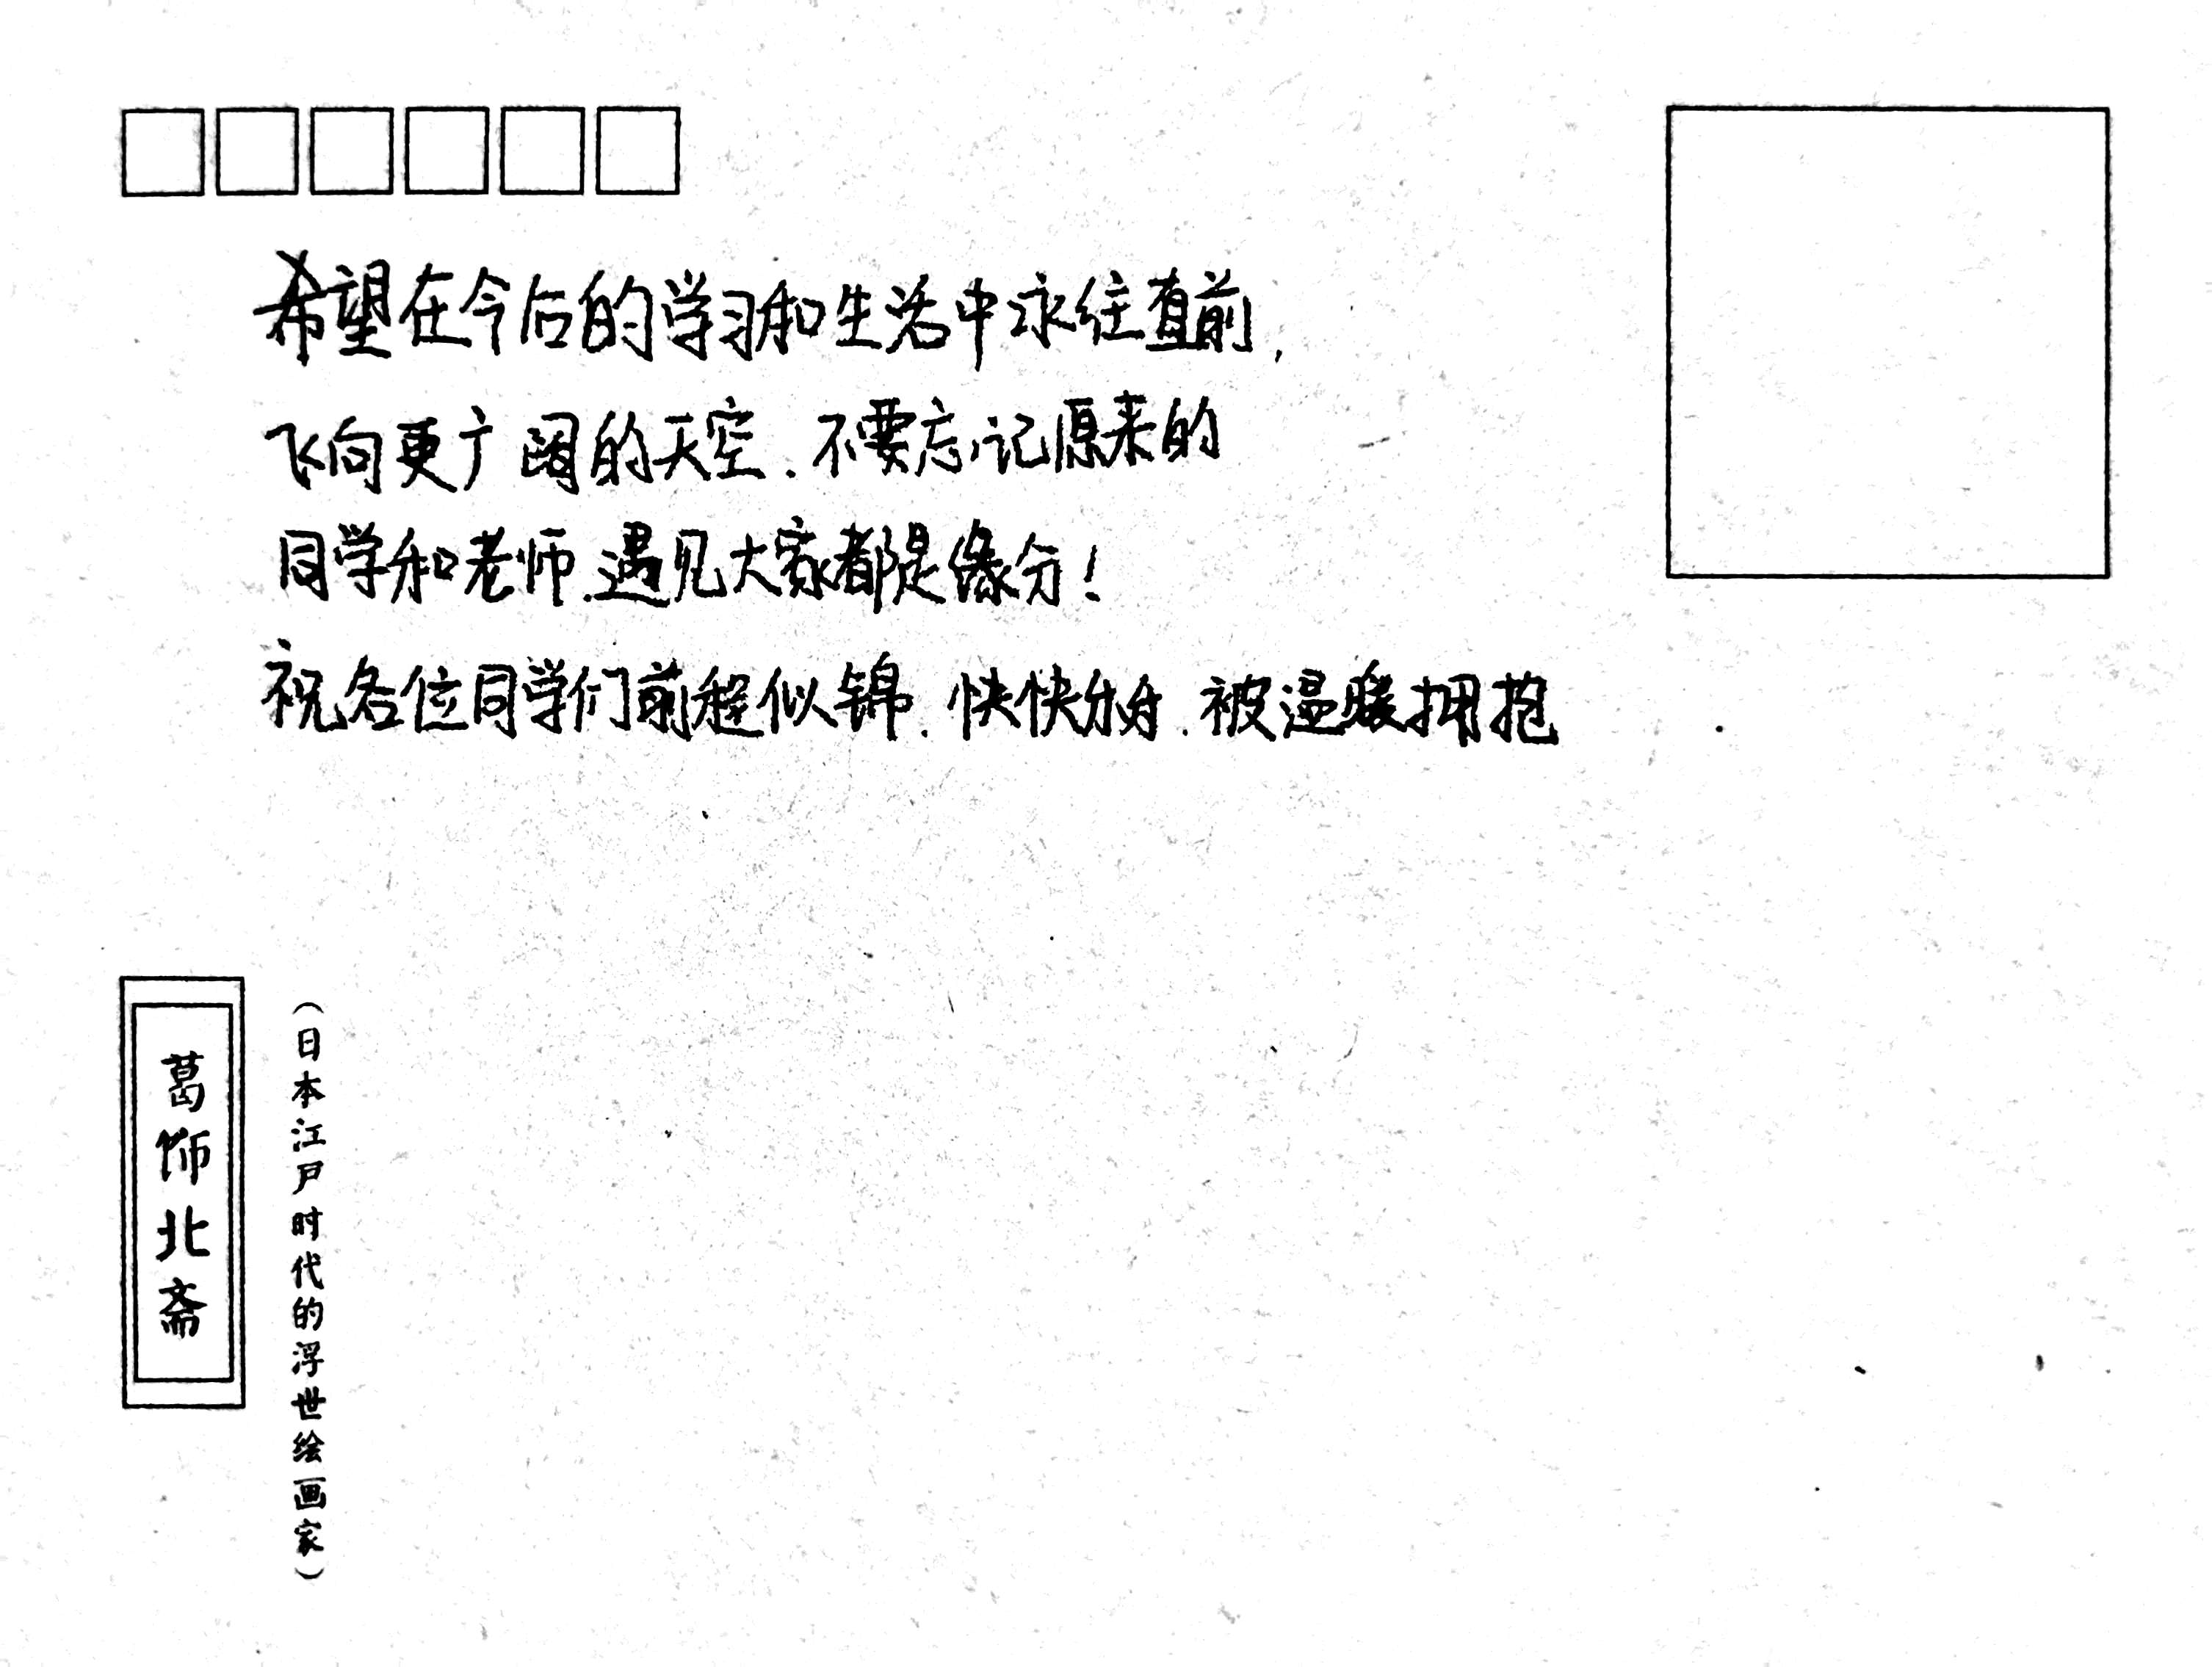 希望在今后的学习和生活中永往直前,
飞向更广阔的天空.不要忘记原来的
同学和老师.遇见大家都是缘分!
祝各位同学们前程似锦.快快乐乐.被温暖拥抱
葛饰北斋
(日本江户时代的浮世绘画家)